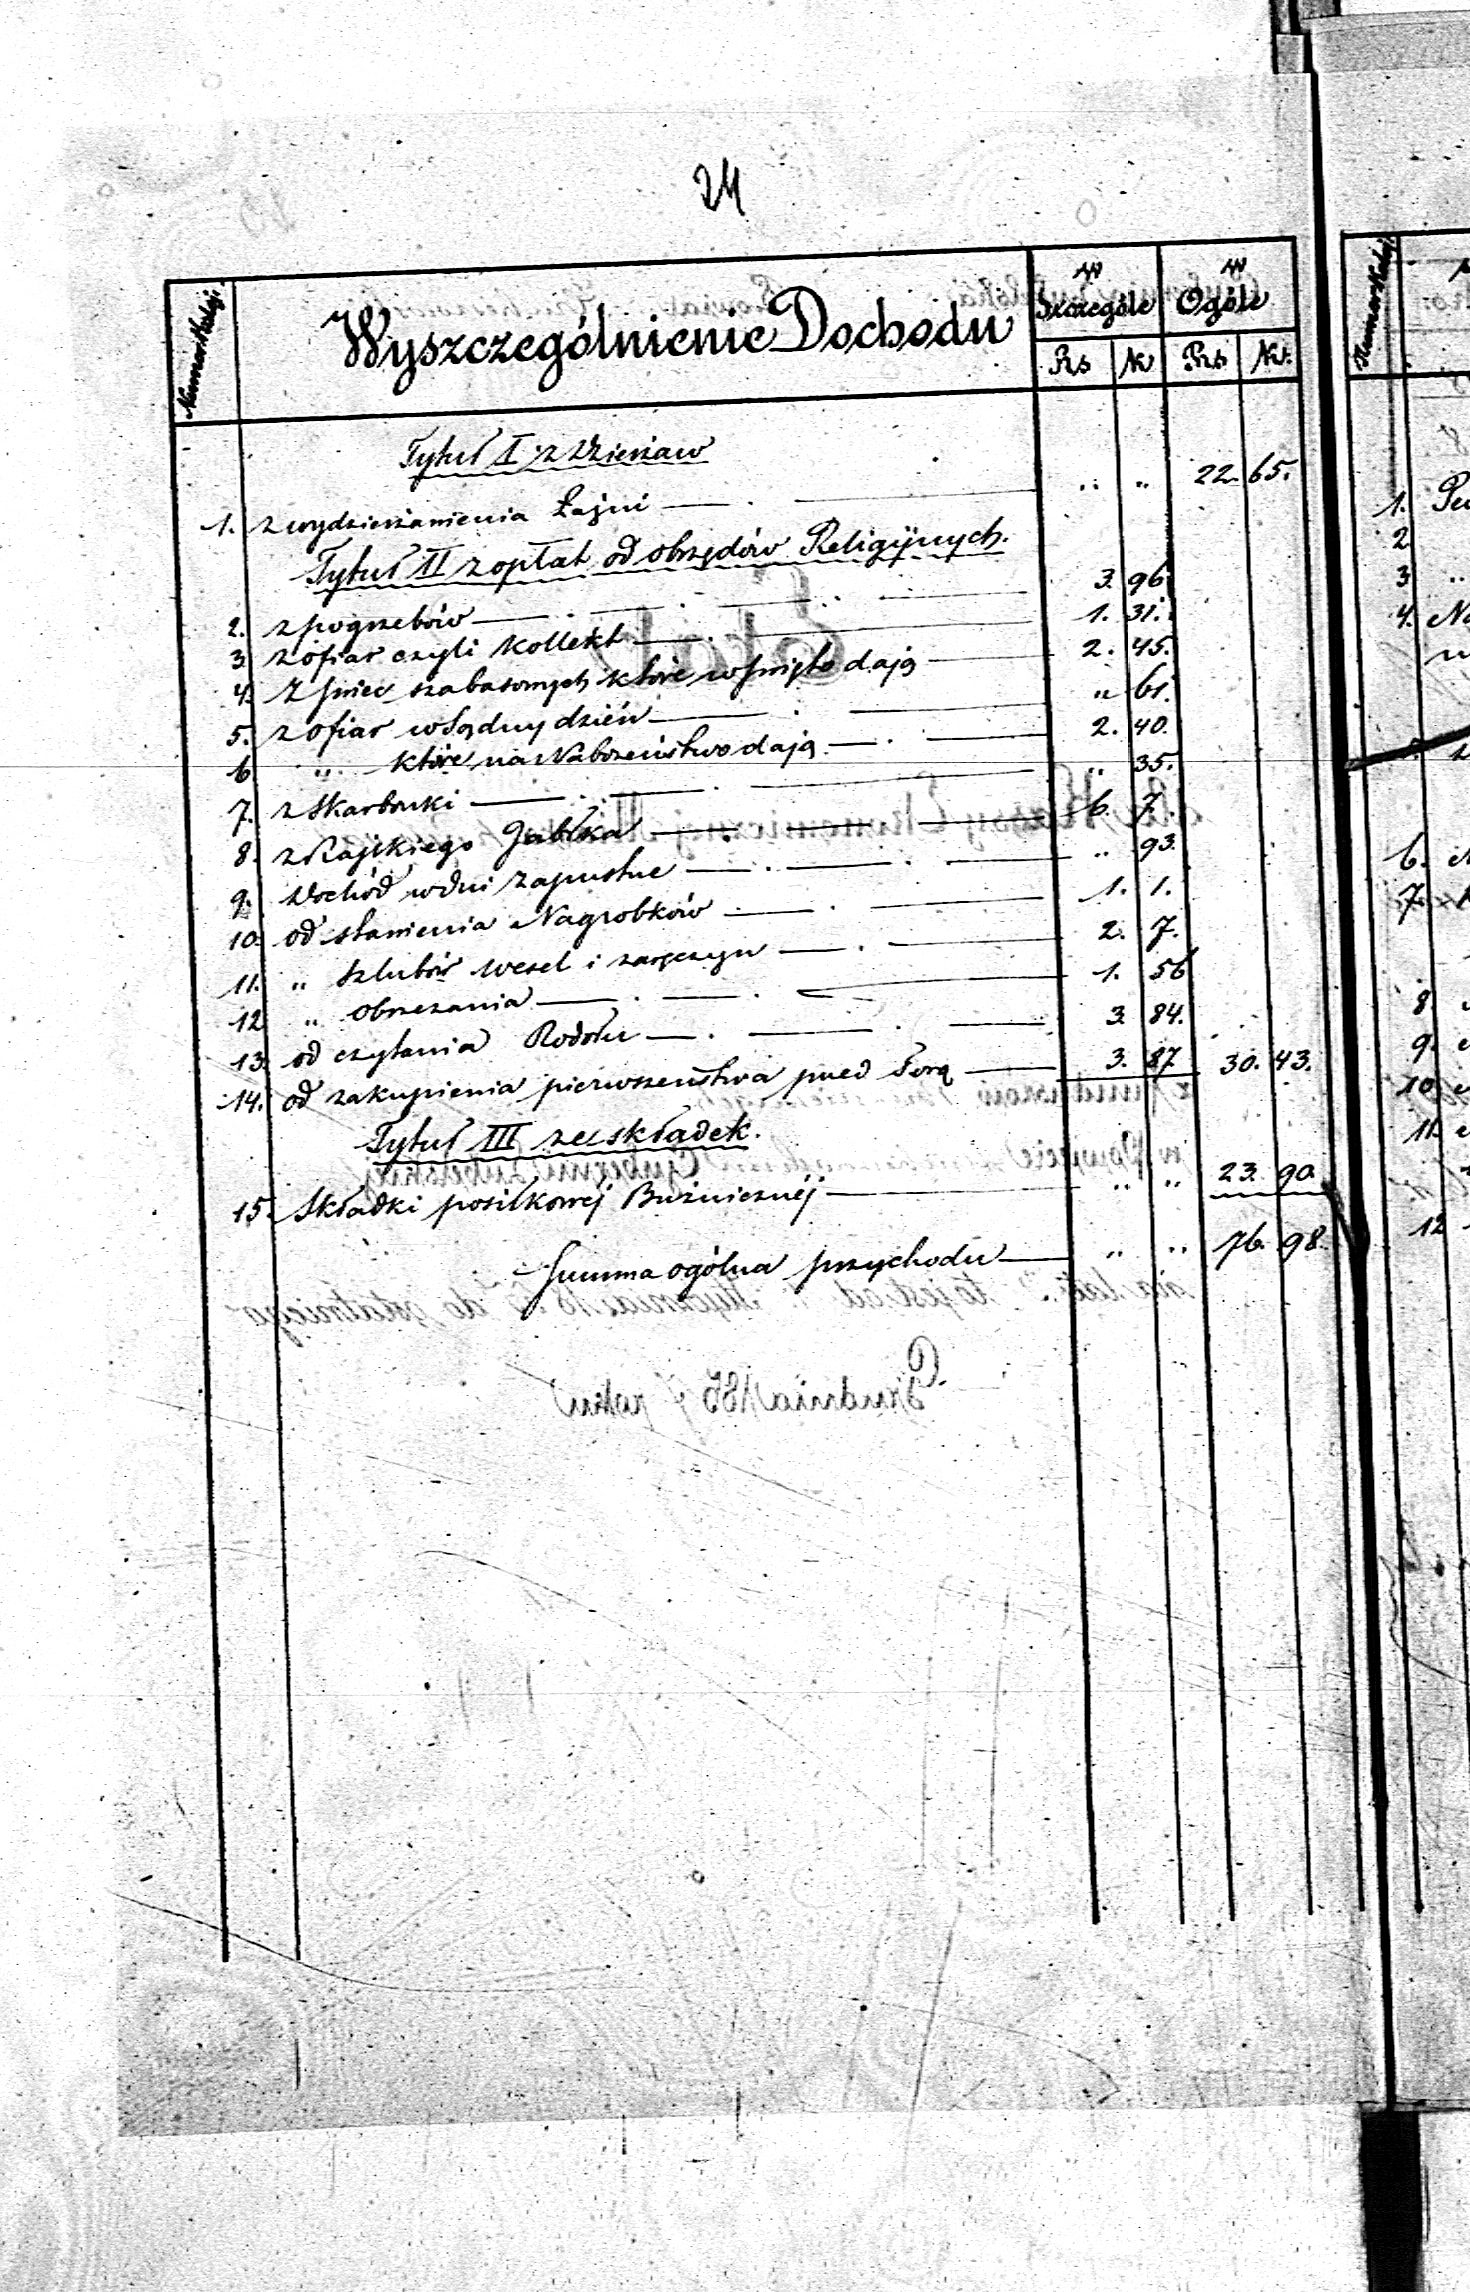 24
Numer Kolej:
Wyszczególnienie Dochodu
W Szczególe
W Ogóle
Rs K Rs K.
Tytuł I z Dzierżaw
1. z wydzierżawienia Łaźni — „ „ 22. 65.
Tytuł II z opłat od obrzędów Religijnych.
2. z pogrzebów — 3. 96
3 z ofiar czyli Kollekt — 1. 31.
4. z świec szabasowych które w święto dają — 2. 45.
5. z ofiar w Sądny dzień — „ 61.
6 „ które na Nabożeństwo dają — 2. 40.
7. z Skarbonki — „ 35.
8. z Rajskiego Jabłka — 6. 7.
9. Dochód w dni zapustne — „ 93.
10. od stawienia Nagrobków — 1. 1.
11. „ Szlubów wesel i zaręczyn — 2. 7.
12 „ obrzezania — 1. 56
13. od czytania Rodołu — 3. 84.
14. od zakupienia pierwszeństwa przed Torą — 3. 87. 30. 43.
Tytuł III ze składek.
15. Składki posiłkowej Bużnicznéj — „ „ 23. 90.
Summa ogólna przychodu — „ „ 76. 98.
Numer Kolej:
1.
2.
3 „
4.
6.
7.
8.
9.
10.
11.
12